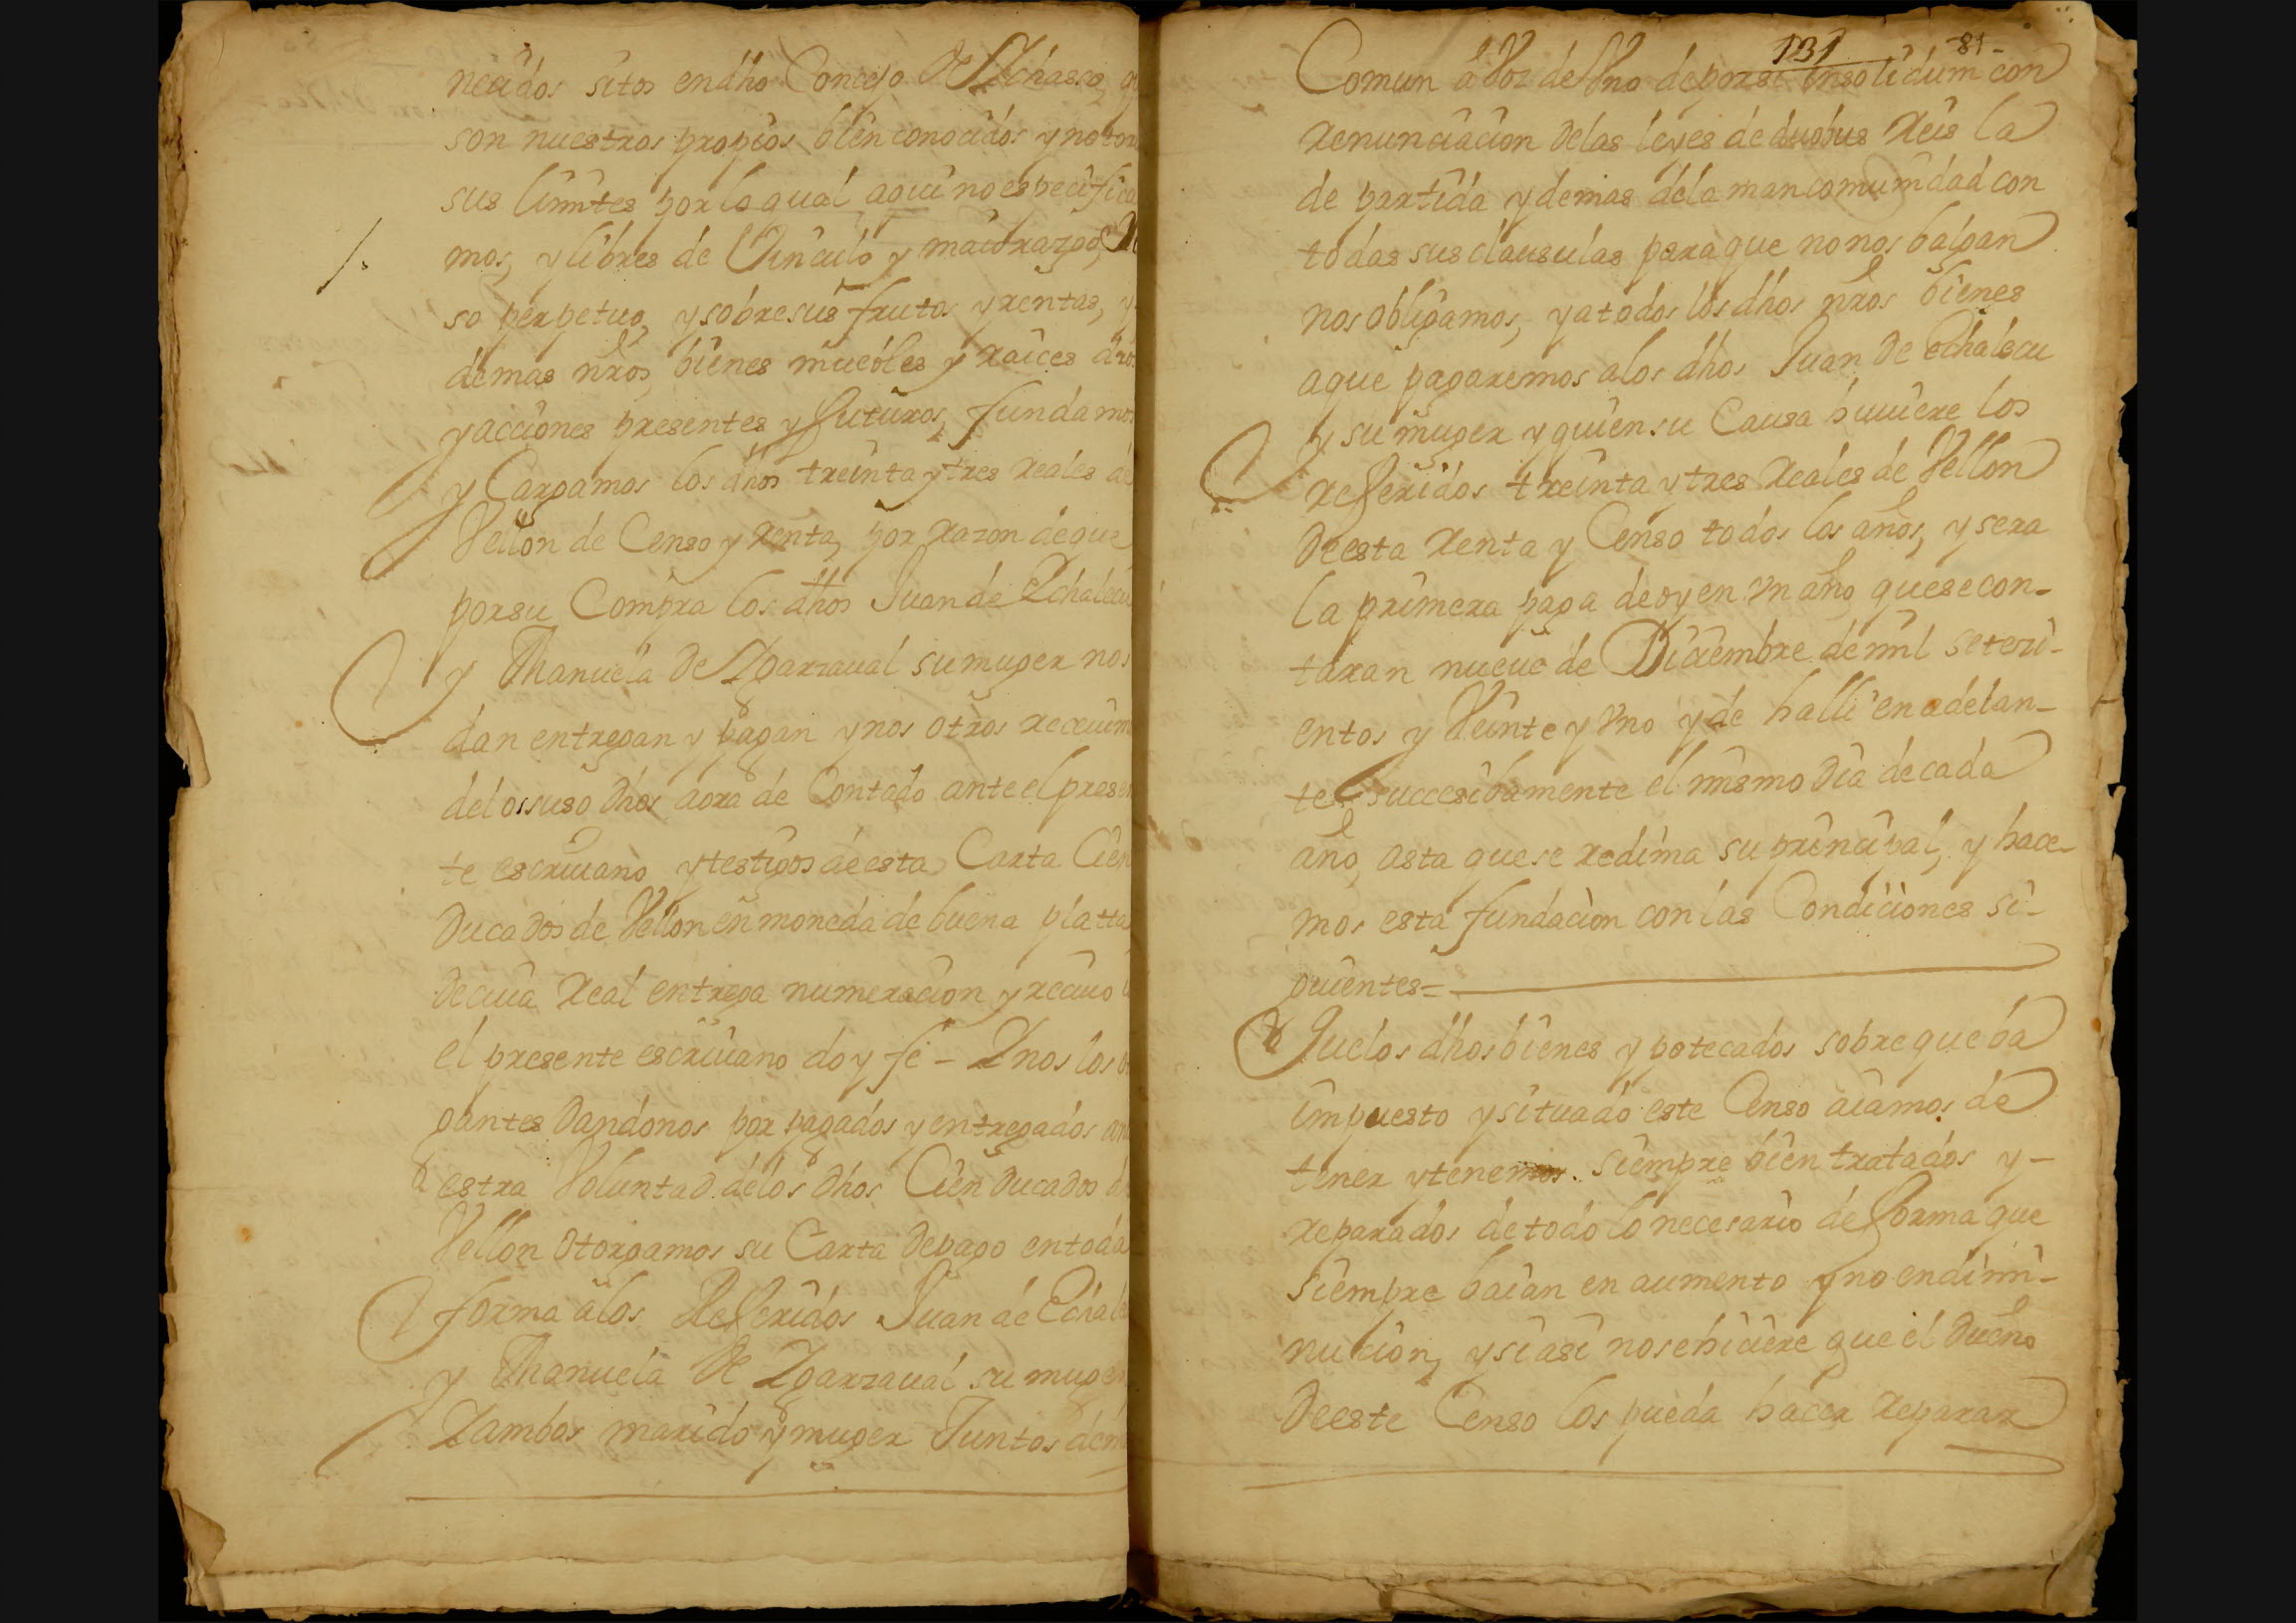 necidos sitos en dho Concejo de Ychasso, q
son nuestros propios bien conocidos y notori
sus limites por lo qual aqui no especifica
mos, y libres de Vinculo y maiorazgo,
so perpetuo, y sobre sus frutos y rentas, y
demas nros bienes muebles y raices dros
y acciones presentes y futuros, fundamos
y Cargamos los dhos treinta y tres reales de
Vellon de Censo y renta, por razon de que
por su Compra los dhos Juan de Echalecu
y Manuela de Ygarzaval su muger nos
dan entregan y pagan y nosotros receuim
de los suso dhos aora de Contado ante el presen
te escriuano y testigos de esta Carta Cien
Ducados de Vellon en moneda de buena platta
de cuia real entrega numeracion y reciuo
el presente escriuano doy fe - Y nos los o
gantes Dandonos por pagados y entregados a nu
estra Voluntad de los dhos Cien Ducados de
Vellon otorgamos su Carta de pago en toda
forma a los Referidos Juan de Echale
y Manuela de Ygarzaval su muger
Y ambos marido y muger Juntos de m
131 -81-
Comun a Voz de Vno de por si insolidum con
renunciacion de las leyes de duobus reis la
de partida y demas de la mancomunidad con
todas sus clausulas para que no nos balgan
nos obligamos, y a todos los dhos nros bienes
a que pagaremos a los dhos Juan de Echalecu
y su muger y quien su Causa huuiere los
referidos treinta y tres reales de Vellon
de esta renta y Censo todos los años, y sera
la primera paga de oy en vn año que se con-
taran nueue de Diciembre de mil seteci-
entos y Veinte y Vno y de halli en adelan-
te succesibamente el mismo dia de cada
año, asta que se redima su principal, y hace-
mos esta fundacion con las Condiciones si-
guientes=
Que los dhos bienes ypotecados sobre que ba
impuesto y situado este Censo aiamos de
tener y tenemos siempre bien tratados y -
reparados de todo lo necesario de forma que
siempre baian en aumento y no en dimi-
nucion, y si asi no se hiciere que el Dueño
de este Censo los pueda hacer reparar